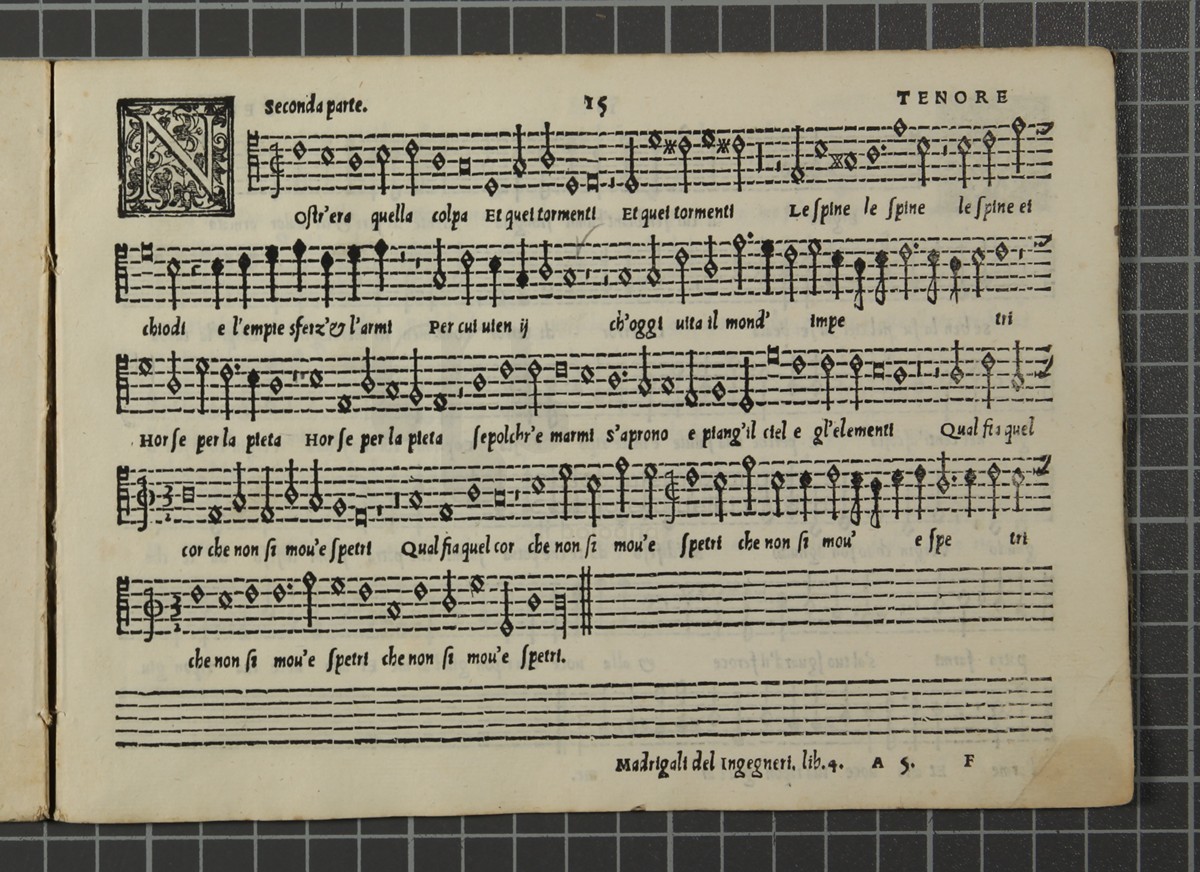 Seconda parte. 15 TENORE
N
Ostr'era quella colpa Et quei tormenti Et quei tormenti Le spine le spine le spine ei
chiodi e l'empie sferz'& l'armi Per cui uien ij ch'oggi uita il mond' impe tri
Hor se per la pieta Hor se per la pieta sepolchr'e marmi s'aprono e piang'il ciel e gl'elementi Qual fia quel
cor che non si mou'e spetri Qual fia quel cor che non si mou'e spetri che non si mou' e spe tri
che non si mou'e spetri che non si mou'e spetri.
Madrigali del Ingegneri. lib. 4. A 5. F